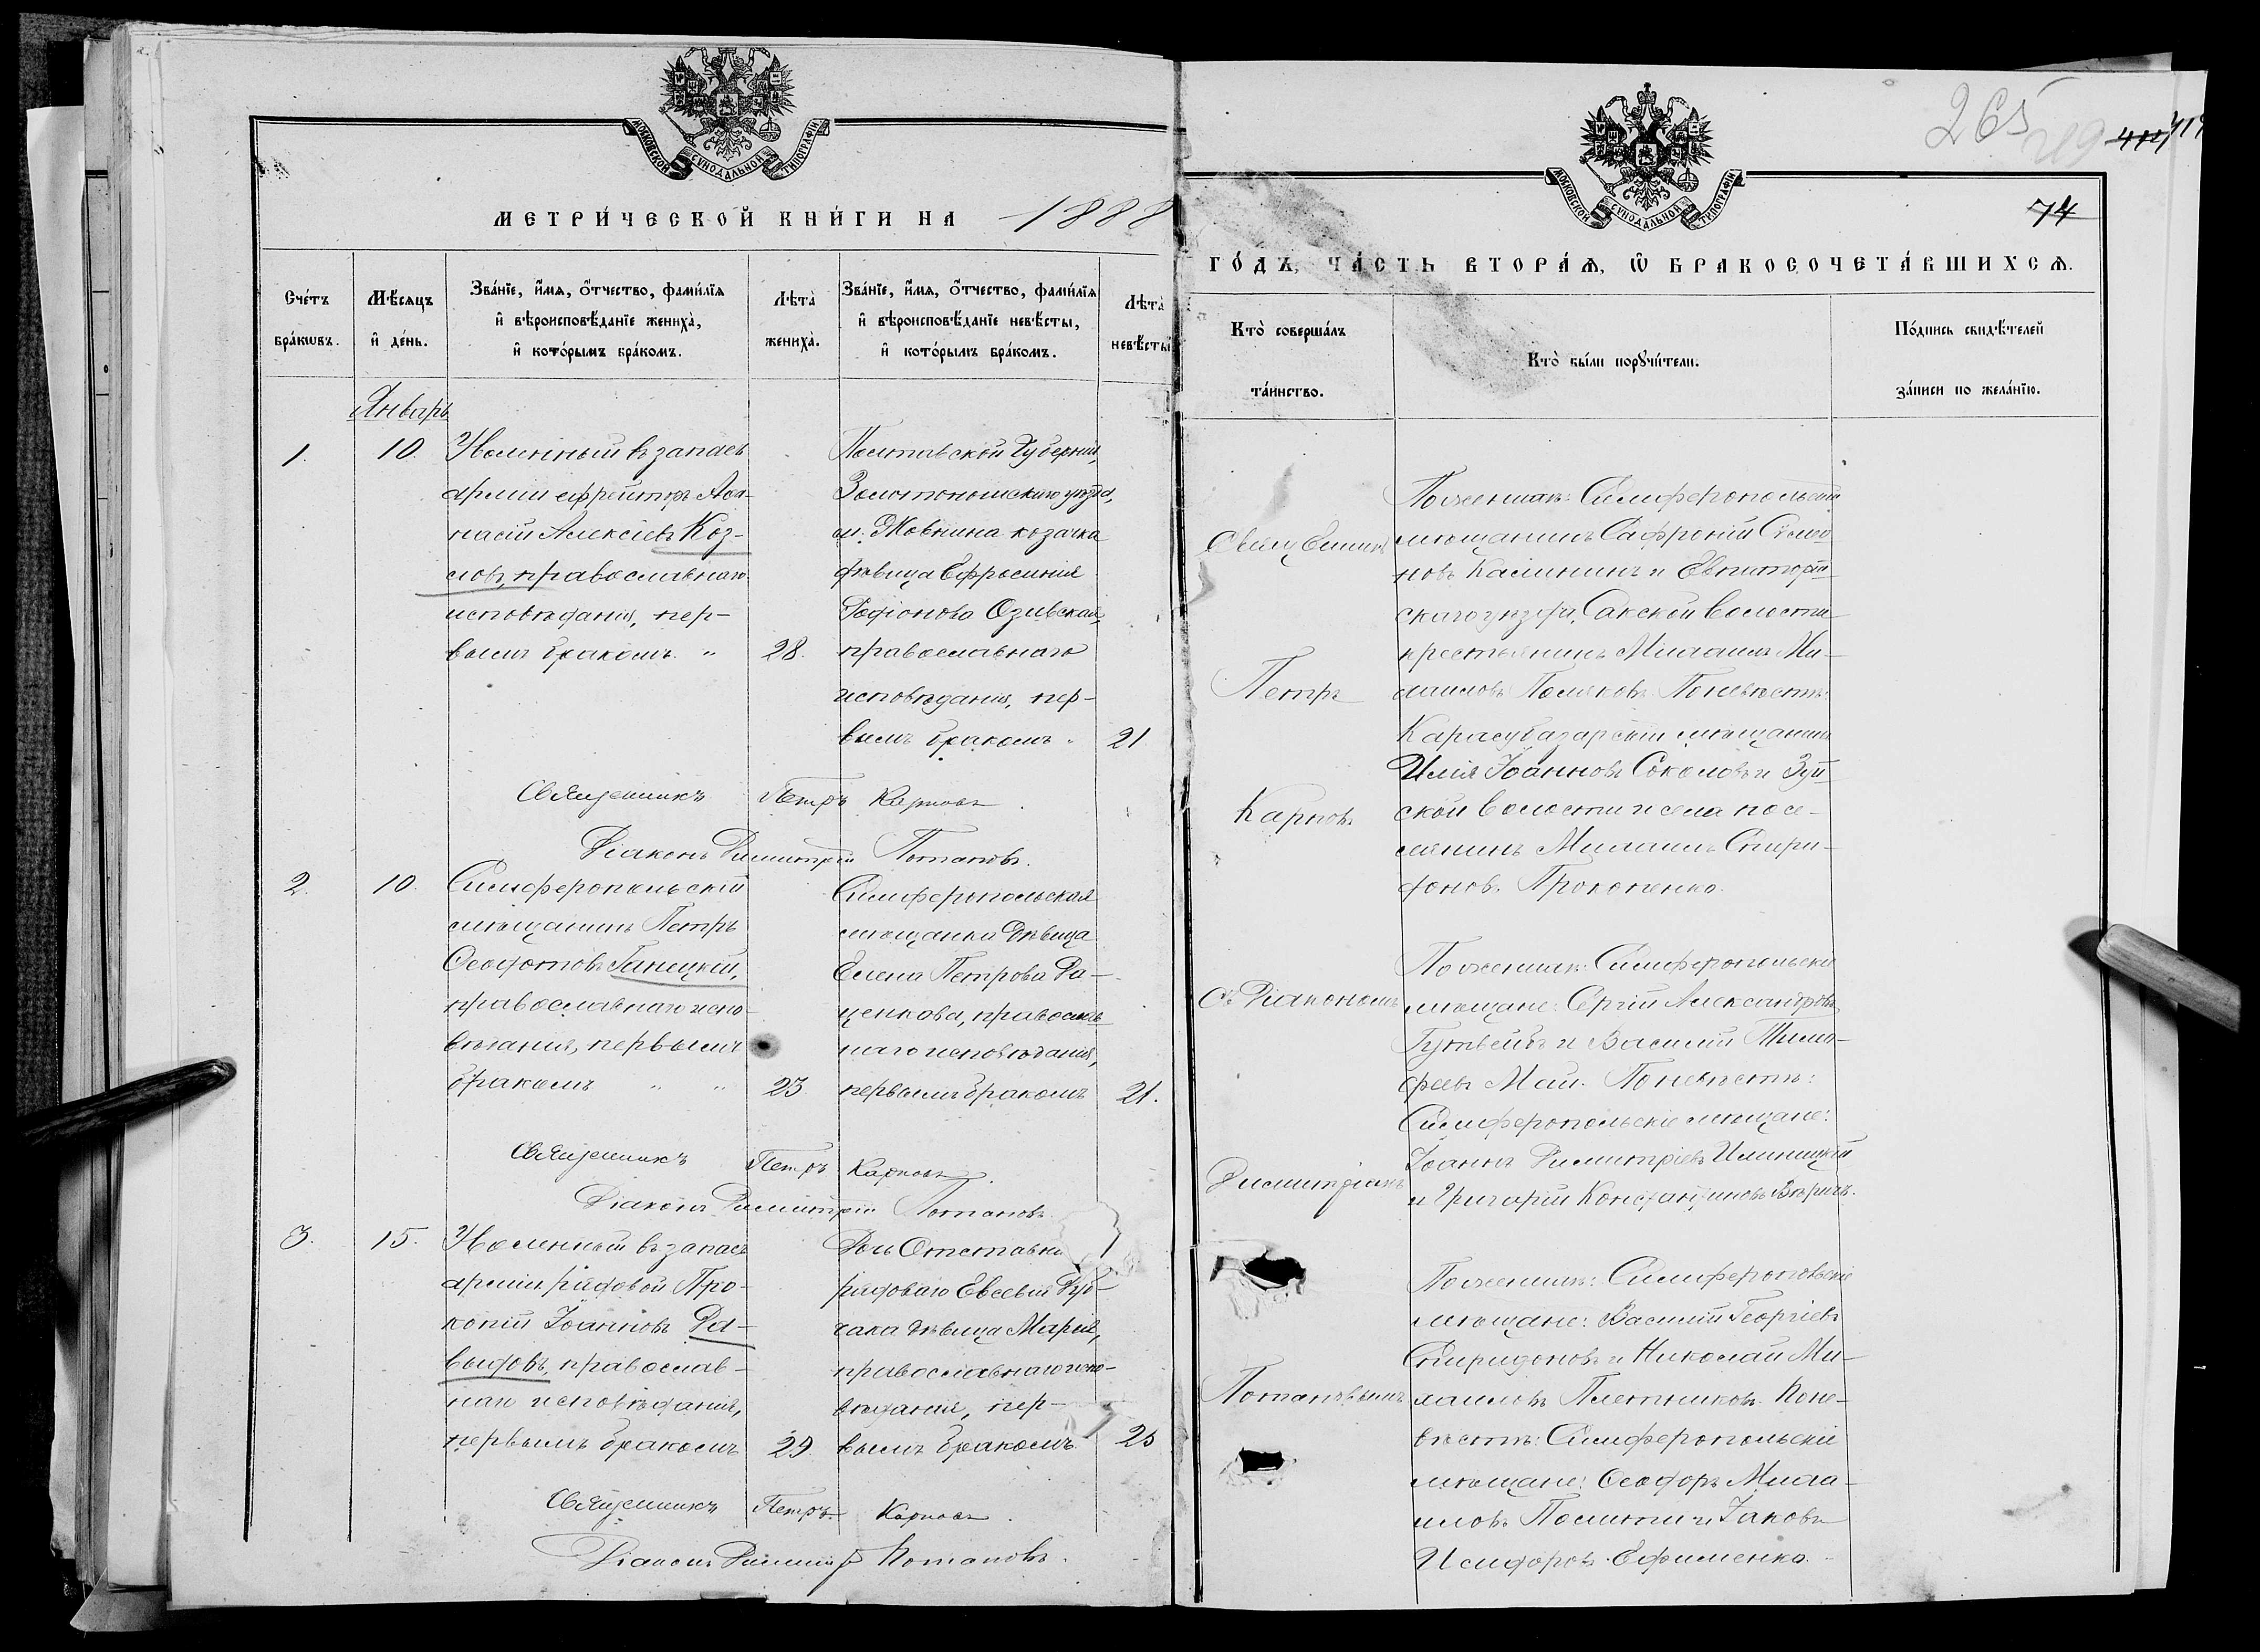 МОСКОВСКОЙ СѴНОДАЛЬНОЙ ТИПОГРАФІИ
МЕТРИ́ЧЕСКОЙ КНИ́ГИ НА 1888
Сче́тъ бра́кѡвъ.
Мѣ́сяцъ и҆ де́нь.
Зва́нїе, и҆́мѧ, ѻ҆́тчество, фами́лїѧ
и҆ вѣроисповѣ́данїе жениха̀,
и҆ кото́рымъ бра́комъ.
Лѣта̀ жениха̀.
Зва́нїе, и҆́мѧ, ѻ҆́тчество, фами́лїѧ
и҆ вѣроисповѣ́данїе невѣ́сты,
и҆ кото́рымъ бра́комъ.
Лѣта̀ невѣ́сты
Январь
1.
10.
Уволенный въ запасъ
арміи ефрейторъ Аѳа-
насій Алексіевъ Коз-
ловъ, православнаго
исповѣданія, пер-
вымъ бракомъ. "
28.
Полтавской Губерніи,
Золотоношскаго уѣзда,
м. Жовнина козачка
дѣвица Ефросинія
Родіонова
православнаго
исповѣданія, пер-
вымъ бракомъ "
21
Священникъ Петръ Карповъ.
Діаконъ Димитрій Потаповъ.
2.
10.
Симферопольскій
мѣщанинъ Петръ
Ѳеодотовъ Ганецкій,
православнаго испо-
вѣданія, первымъ
бракомъ " "
23.
Симферопольская
мѣщанка дѣвица
Елена Петрова Да-
ценкова, православ-
наго исповѣданія,
первымъ бракомъ
21.
Священникъ Петръ Карповъ.
Діаконъ Димитрій Потаповъ.
3.
15.
Уволенный въ запасъ
арміи рядовой Про-
копій Іоанновъ Да-
выдовъ, православ-
наго исповѣданія,
первымъ бракомъ
29.
Дочь Отставн
рядоваго Евсевія
дѣвица Марія,
православнаго испо-
вѣданія, пер-
вымъ бракомъ
25
Священникъ Петръ Карповъ.
Діаконъ Димитрій Потаповъ.
265
414
74
МОСКОВСКОЙ СѴНОДАЛЬНОЙ ТИПОГРАФІИ
ГО́ДЪ, ЧА́СТЬ ВТОРА́Ѧ, Ѽ БРАКОСОЧЕТА́ВШИХСѦ.
Кто̀ соверша́лъ
та́инство.
Кто̀ бы́ли порꙋчи́тели.
По́дпись свидѣ́телей
за́писи по жела́нїю.
Священникъ
Петръ
Карповъ
Съ Діакономъ
Димитріемъ
Потаповымъ
По женихѣ: Симферопольскій
мѣщанинъ Сафроній Симео-
новъ Калининъ и Евпаторій-
скаго уѣзда, Сакской волости
крестьянинъ Михаилъ Ми-
хаиловъ Поляковъ. По невѣстѣ:
Карасубазарскій мѣщанинъ
Илія Іоанновъ Соколовъ и Зуй-
ской волости и села посе-
лянинъ Михаилъ Спири-
доновъ Прокопенко.
По женихѣ: Симферопольскіе
мѣщане: Сергій Александровъ
и Василій Тимо-
феевъ Май. По невѣстѣ:
Симферопольскіе мѣщане:
Іоаннъ Димитріевъ Ильницкій
и Григорій Константиновъ
По женихѣ: Симферопольскіе
мѣщане: Василій Георгіевъ
Спиридоновъ и Николай Ми-
хаиловъ Плетниковъ. По не-
вѣстѣ: Симферопольскіе
мѣщане: Ѳеодоръ Миха-
иловъ и Іаковъ
Исидоровъ Ефименко.